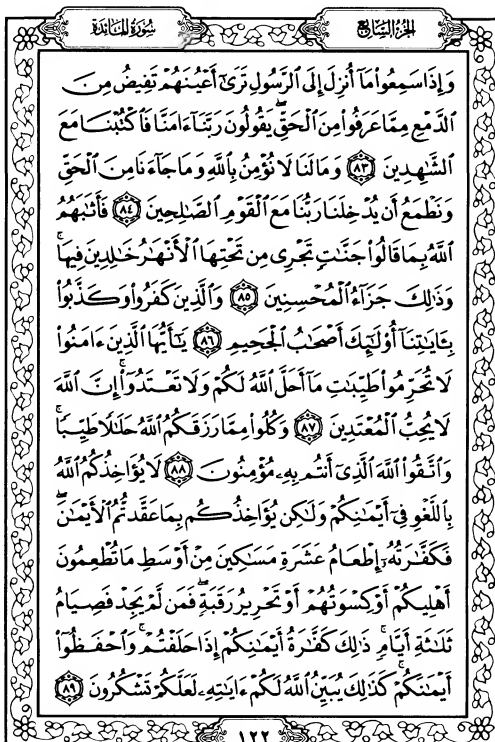 سُورَةُ المَائدة
الجزء السابع
وَإِذَا سَمِعُوا۟ مَآ أُنزِلَ إِلَى ٱلرَّسُولِ تَرَىٰٓ أَعْيُنَهُمْ تَفِيضُ مِنَ
ٱلدَّمْعِ مِمَّا عَرَفُوا۟ مِنَ ٱلْحَقِّ ۖ يَقُولُونَ رَبَّنَآ ءَامَنَّا فَٱكْتُبْنَا مَعَ
ٱلشَّٰهِدِينَ ٨٣ وَمَا لَنَا لَا نُؤْمِنُ بِٱللَّهِ وَمَا جَآءَنَا مِنَ ٱلْحَقِّ
وَنَطْمَعُ أَن يُدْخِلَنَا رَبُّنَا مَعَ ٱلْقَوْمِ ٱلصَّٰلِحِينَ ٨٤ فَأَثَٰبَهُمُ
ٱللَّهُ بِمَا قَالُوا۟ جَنَّٰتٍ تَجْرِى مِن تَحْتِهَا ٱلْأَنْهَٰرُ خَٰلِدِينَ فِيهَا ۚ
وَذَٰلِكَ جَزَآءُ ٱلْمُحْسِنِينَ ٨٥ وَٱلَّذِينَ كَفَرُوا۟ وَكَذَّبُوا۟
بِـَٔايَٰتِنَآ أُو۟لَٰٓئِكَ أَصْحَٰبُ ٱلْجَحِيمِ ٨٦ يَٰٓأَيُّهَا ٱلَّذِينَ ءَامَنُوا۟
لَا تُحَرِّمُوا۟ طَيِّبَٰتِ مَآ أَحَلَّ ٱللَّهُ لَكُمْ وَلَا تَعْتَدُوٓا۟ ۚ إِنَّ ٱللَّهَ
لَا يُحِبُّ ٱلْمُعْتَدِينَ ٨٧ وَكُلُوا۟ مِمَّا رَزَقَكُمُ ٱللَّهُ حَلَٰلًا طَيِّبًا ۚ
وَٱتَّقُوا۟ ٱللَّهَ ٱلَّذِىٓ أَنتُم بِهِۦ مُؤْمِنُونَ ٨٨ لَا يُؤَاخِذُكُمُ ٱللَّهُ
بِٱللَّغْوِ فِىٓ أَيْمَٰنِكُمْ وَلَٰكِن يُؤَاخِذُكُم بِمَا عَقَّدتُّمُ ٱلْأَيْمَٰنَ ۖ
فَكَفَّٰرَتُهُۥٓ إِطْعَامُ عَشَرَةِ مَسَٰكِينَ مِنْ أَوْسَطِ مَا تُطْعِمُونَ
أَهْلِيكُمْ أَوْ كِسْوَتُهُمْ أَوْ تَحْرِيرُ رَقَبَةٍ ۖ فَمَن لَّمْ يَجِدْ فَصِيَامُ
ثَلَٰثَةِ أَيَّامٍ ۚ ذَٰلِكَ كَفَّٰرَةُ أَيْمَٰنِكُمْ إِذَا حَلَفْتُمْ ۚ وَٱحْفَظُوٓا۟
أَيْمَٰنَكُمْ ۚ كَذَٰلِكَ يُبَيِّنُ ٱللَّهُ لَكُمْ ءَايَٰتِهِۦ لَعَلَّكُمْ تَشْكُرُونَ ٨٩
١٢٢